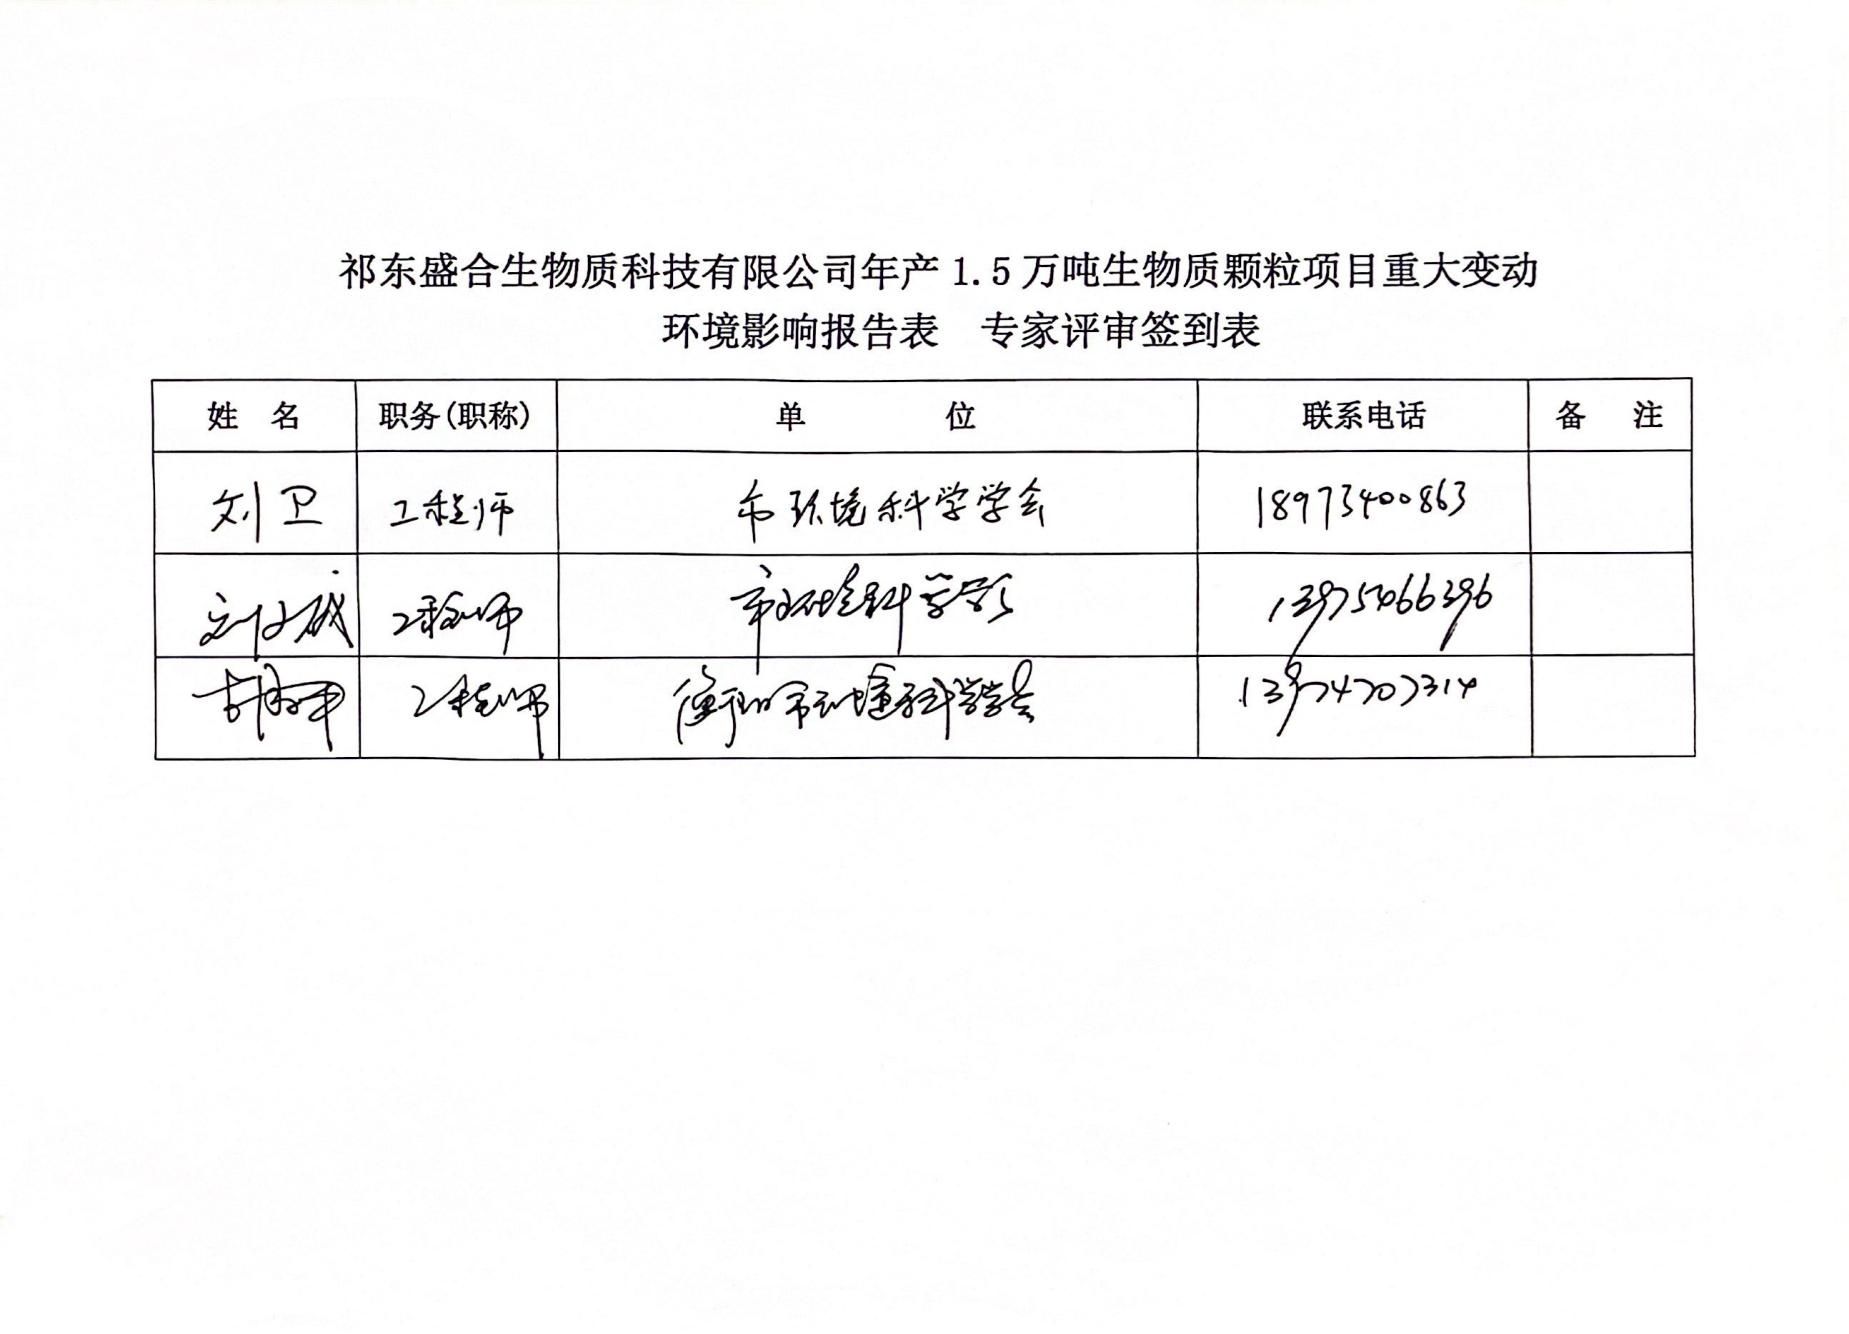 祁东盛合生物质科技有限公司年产1.5万吨生物质颗粒项目重大变动
环境影响报告表 专家评审签到表
姓 名 职务(职称) 单 位 联系电话 备 注
刘卫 工程师 市环境科学学会 18973400863
刘 成 工程师 市环境科学学会 13975466396
胡 工程师 衡阳市环境科学学会 13974707314